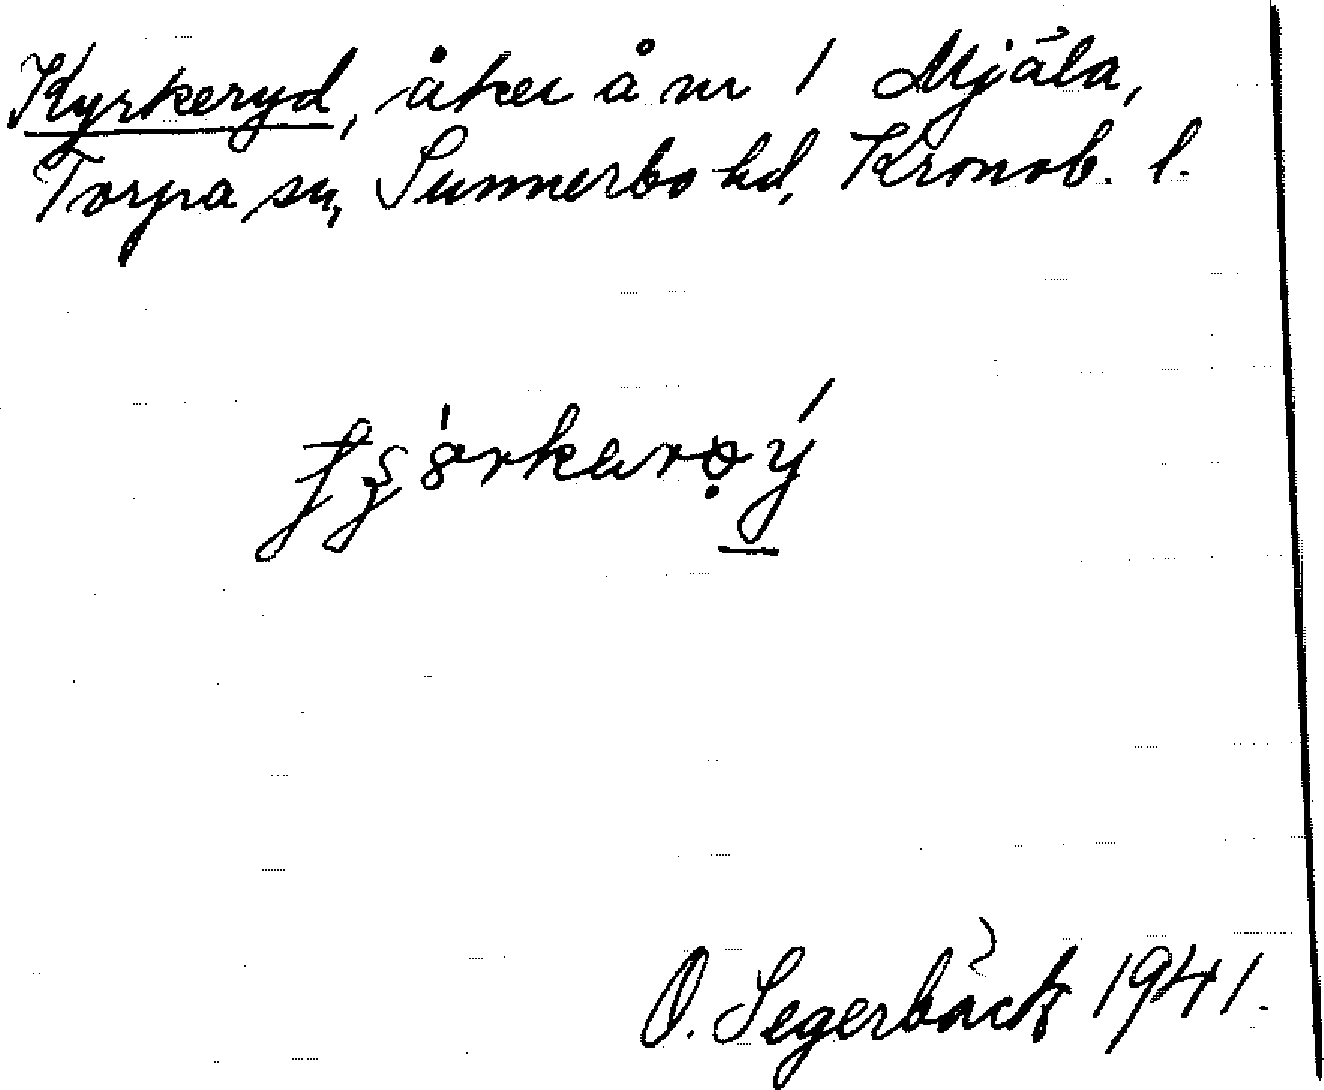 Kyrkeryd, åker å nr 1 Mjäla,
Torpa sn, Sunnerbo hd, Kronob. l.
O. Segerbäck 1941.